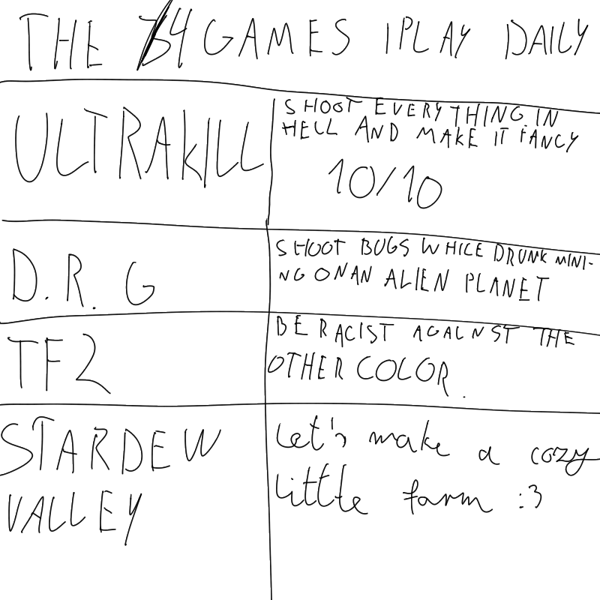 THE 4 GAMES I PLAY DAILY
ULTRAKILL
SHOOT EVERYTHING IN
HELL AND MAKE IT FANCY
10/10
D.R.G
SHOOT BUGS WHILE DRUNK MINI-
NG ON AN ALIEN PLANET
TF2
BE RACIST AGAINST THE
OTHER COLOR.
STARDEW
VALLEY
Let's make a cozy
little farm :3